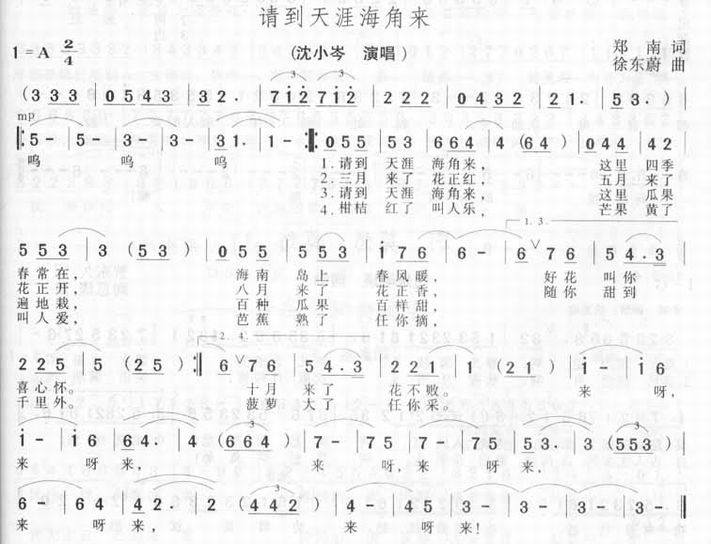 请到天涯海角来
1=A 2/4
(沈小岑 演唱)
郑 南 词
徐东蔚 曲
(3 3 3 | 0 5 4 3 | 3 2. | 7 1 2 7 1 2 | 2 2 2 | 0 4 3 2 | 2 1. | 5 3.) |
mp
5 - | 5 - | 3 - | 3 - | 3 1. | 1 - | 0 5 5 | 5 3 | 6 6 4 | 4 (6 4) | 0 4 4 | 4 2 |
呜 呜 呜 1.请到 天涯 海角来, 这里 四季
2.三月 来了 花正红, 五月 来了
3.请到 天涯 海角来, 这里 瓜果
4.柑桔 红了 叫人乐, 芒果 黄了
1. 3.
5 5 3 | 3 (5 3) | 0 5 5 | 5 5 3 | 1 7 6 | 6 - | 6 - | 6 V 7 6 | 5 4. 3 |
春常在, 海南 岛上 春风暖, 好花 叫你
花正开, 八月 来了 花正香, 随你 甜到
遍地栽, 百种 瓜果 百样甜,
叫人爱, 芭蕉 熟了 任你摘,
2. 4.
2 2 5 | 5 (2 5) | 6 V 7 6 | 5 4. 3 | 2 2 1 | 1 (2 1) | 1 - | 1 6 |
喜心怀。 十月 来了 花不败。 来 呀,
千里外。 菠萝 大了 任你采。
1 - | 1 6 | 6 4. | 4 (6 6 4) | 7 - | 7 5 | 7 - | 7 5 | 5 3. | 3 (5 5 3) |
来 呀 来, 来 呀, 来 呀来,
6 - | 6 4 | 4 2. | 2 (4 4 2) | 5 - | 5 3 | 3 - | 3 - | 3 - | 3 - |
来 呀 来, 来 呀来!